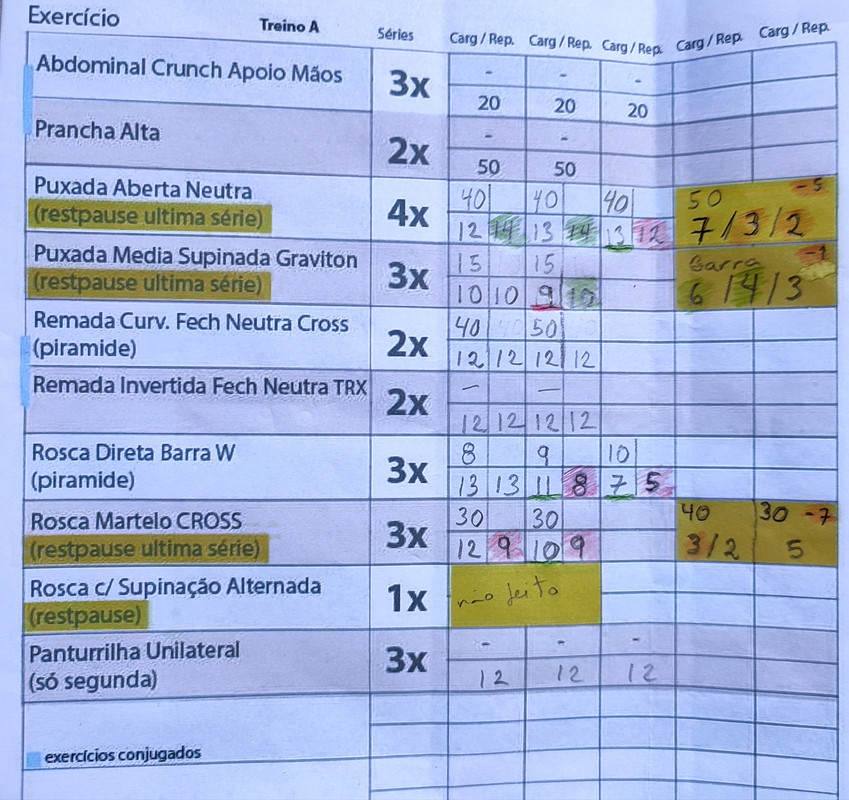 Exercício Treino A Séries Carg / Rep. Carg / Rep. Carg / Rep. Carg / Rep. Carg / Rep.
Abdominal Crunch Apoio Mãos 3x - - -
20 20 20
Prancha Alta 2x - -
50 50
Puxada Aberta Neutra 4x 40 40 40 50 -5
(restpause ultima série) 12 14 13 14 13 12 7/3/2
Puxada Media Supinada Graviton 3x 15 15 Barra -1
(restpause ultima série) 10 10 9 10 6/4/3
Remada Curv. Fech Neutra Cross 2x 40 50
(piramide) 12 12 12 12
Remada Invertida Fech Neutra TRX 2x - -
12 12 12 12
Rosca Direta Barra W 3x 8 9 10
(piramide) 13 13 11 8 7 5
Rosca Martelo CROSS 3x 30 30 40 30 -7
(restpause ultima série) 12 9 10 9 3/2 5
Rosca c/ Supinação Alternada 1x não feito
(restpause)
Panturrilha Unilateral 3x - - -
(só segunda) 12 12 12
exercícios conjugados